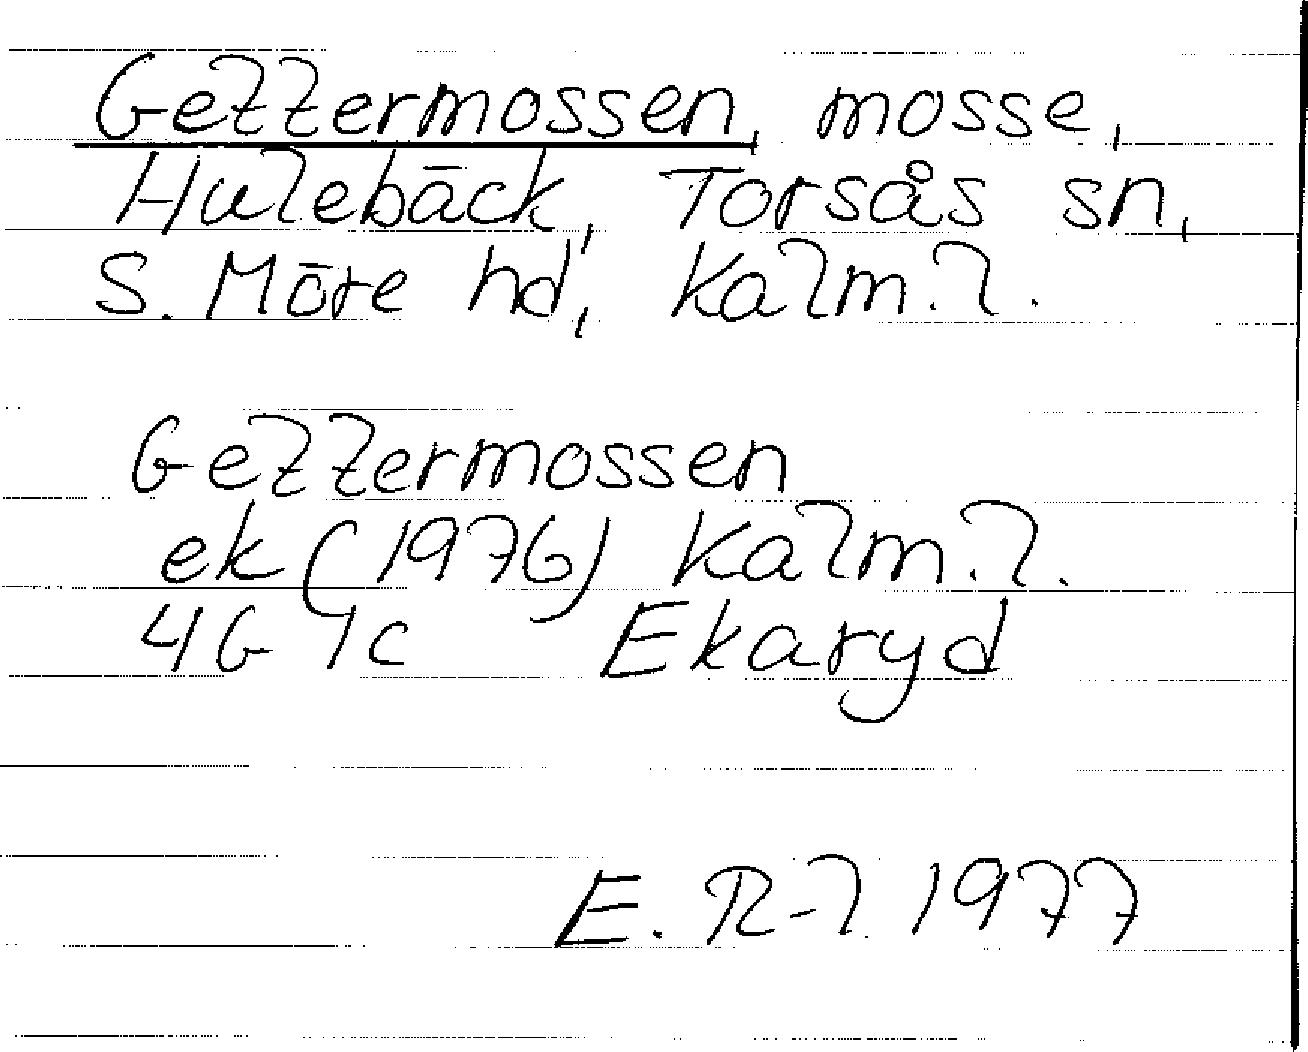 Gettermossen, mosse,
Hulebäck, Torsås sn,
S. Möre hd, Kalm. l.
Gettermossen
ek (1976) Kalm. l.
4G 1c Ekaryd
E. R-l 1977